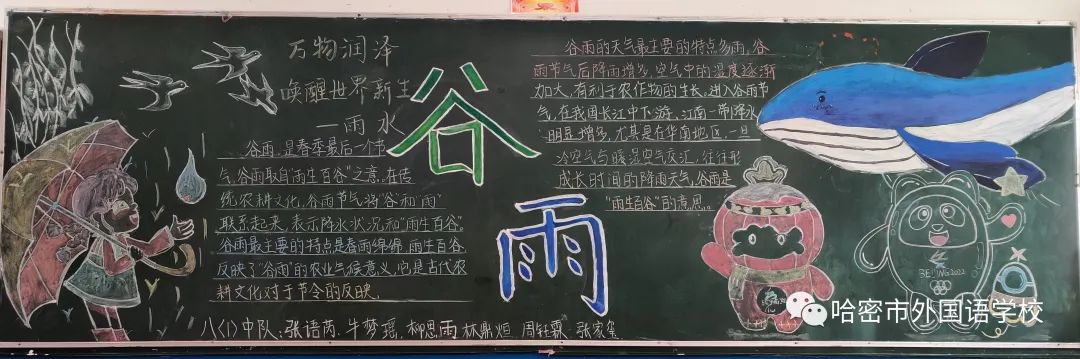 万物润泽
唤醒世界新生
—雨水
谷雨
谷雨,是春季最后一个节
气,谷雨取自"雨生百谷"之意,在传
统农耕文化,谷雨节气将"谷和雨"
联系起来,表示降水状况和"雨生百谷"。
谷雨最主要的特点是春雨绵绵,雨生百谷,
反映了"谷雨"的农业气候意义,它是古代农
耕文化对于节令的反映.
谷雨的天气最主要的特点多雨,谷
雨节气后降雨增多,空气中的温度逐渐
加大,有利于农作物的生长,进入谷雨节
气,在我国长江中下游、江南一带降水
明显增多,尤其是在华南地区,一旦
冷空气与暖湿空气交汇,往往形
成长时间的降雨天气,谷雨是
"雨生百谷"的意思。
BEIJING2022
八(1)中队:张语芮、牛梦瑶、柳思雨 林鼎烜 周钰霖、张家玺
哈密市外国语学校